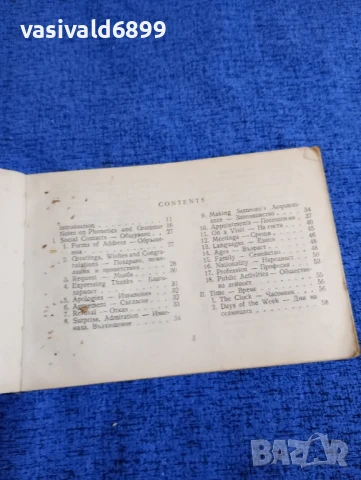 vasivald6899
CONTENTS
Introduction 11
Notes on Phonetics and Grammar 16
1. Social Contacts — Общуване 27
1. Forms of Address — Обръще-
2. Greetings, Wishes and Congra-
tulations — Поздрави, поже-
3. Request — Молба
4. Expressing Thanks — Благо-
дарност
5. Apologies — Извинения
6. Agreement — Съгласие
7. Refusal — Отказ
8. Surprise, Admiration — Изне-
нада, Възхищение
9. Making Someone's Acquaint-
ance — Запознанство
10. Appointments —
11. On a Visit — На гости
12. Meetings — Срещи
13. Languages — Езици
14. Age — Възраст
15. Family — Семейство
16. Nationality — Народност
17. Profession — Професия
18. Public Activities — Обществе-
на дейност
II. Time — Време
1. The Clock — Часовник
2. Days of the Week — Дни на
седмицата
3
BAZAR
bg